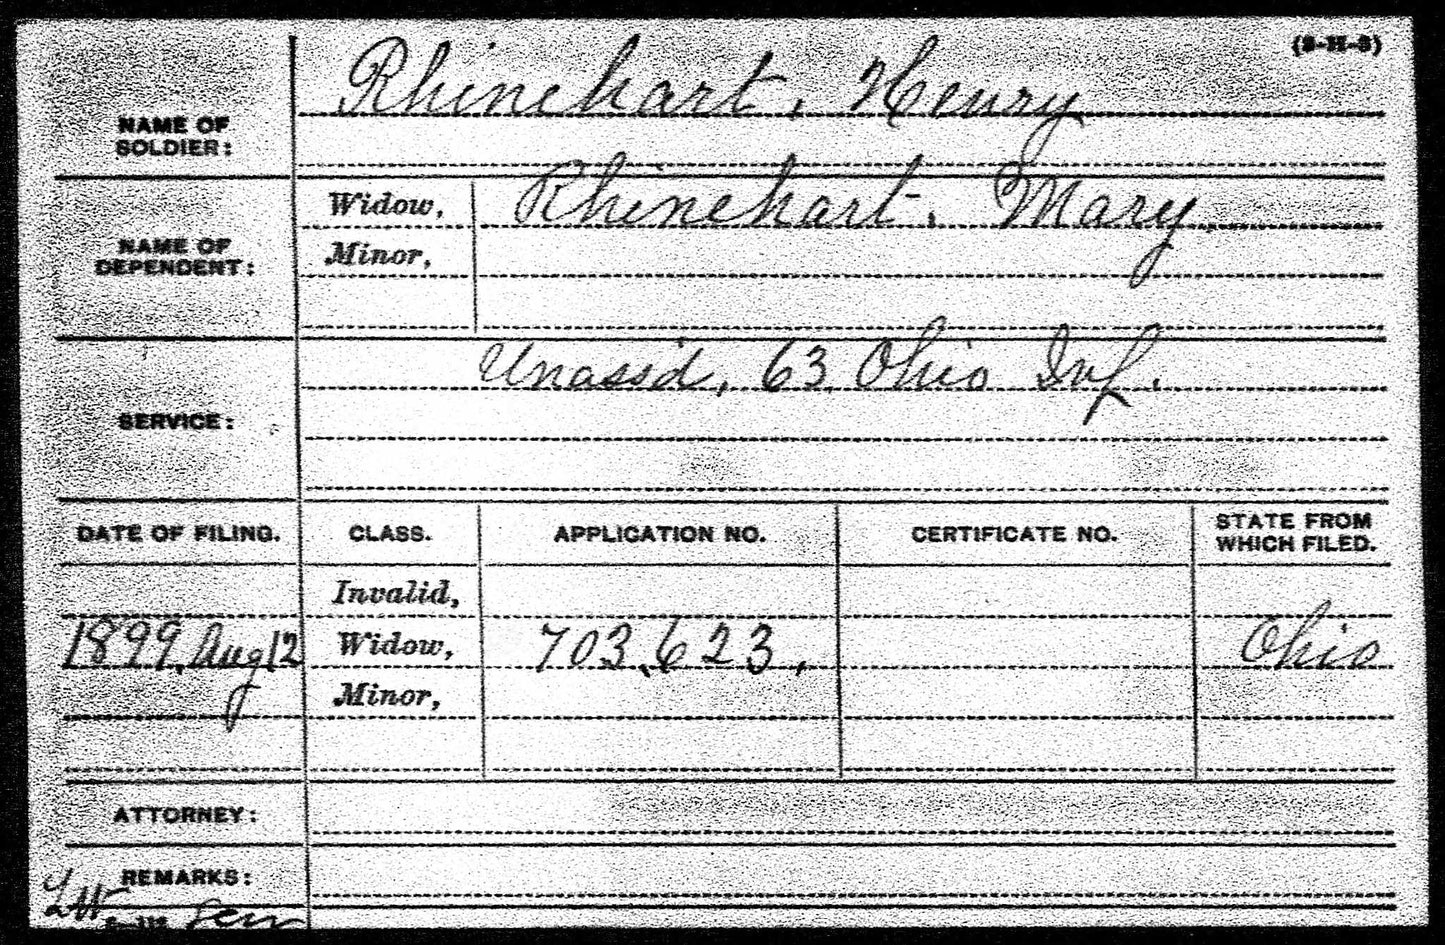 (3-H-3)
Rhinehart, Henry
NAME OF
SOLDIER:
Widow, Rhinehart, Mary
NAME OF
DEPENDENT:
Minor,
Unass'd, 63 Ohio Inf.
SERVICE:
DATE OF FILING. CLASS. APPLICATION NO. CERTIFICATE NO. STATE FROM
WHICH FILED.
Invalid,
1899, Aug 12 Widow, 703,623, Ohio
Minor,
ATTORNEY:
REMARKS: